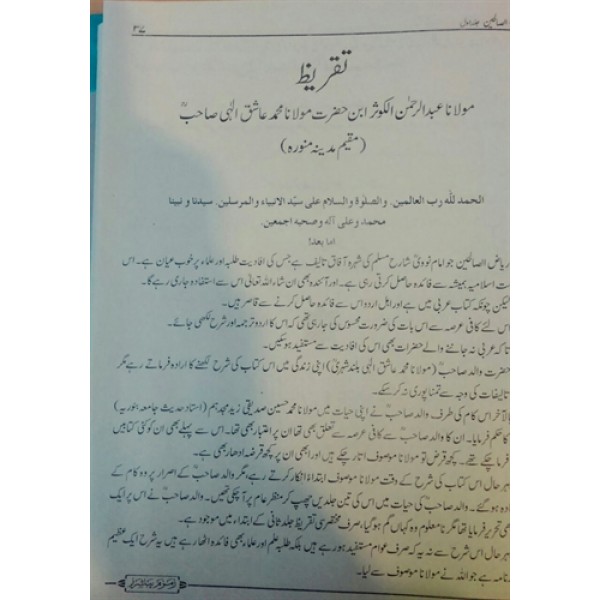 الصالحین جلد اول ۳۷
تقریظ
مولانا عبدالرحمٰن الکوثر ابن حضرت مولانا محمد عاشق الٰہی صاحبؒ
(مقیم مدینہ منورہ)
الحمد للّٰه رب العالمین، والصلوٰة والسلام علی سیّد الانبیاء والمرسلین، سیدنا و نبینا
محمد وعلی آله وصحبه اجمعین.
اما بعد!
ریاض الصالحین جو امام نوویؒ شارح مسلم کی شہرہ آفاق تالیف ہے جس کی افادیت طلبہ اور علماء پر خوب عیاں ہے۔ اس
ت اسلامیہ ہمیشہ سے فائدہ حاصل کرتی رہی ہے۔ اور آئندہ بھی ان شاء اللہ تعالیٰ اس سے استفادہ جاری رہے گا۔
لیکن چونکہ کتاب عربی میں ہے اور اہل اردو اس سے فائدہ حاصل کرنے سے قاصر ہیں۔
اس لئے کافی عرصہ سے اس بات کی ضرورت محسوس کی جا رہی تھی کہ اس کا اردو ترجمہ اور شرح لکھی جائے۔
تا کہ عربی نہ جاننے والے حضرات بھی اس کی افادیت سے مستفید ہو سکیں۔
حضرت والد صاحبؒ (مولانا محمد عاشق الٰہی بلند شہریؒ) اپنی زندگی میں اس کتاب کی شرح لکھنے کا ارادہ فرماتے رہے مگر
تالیفات کی وجہ سے تمنا پوری نہ کر سکے۔
بالآخر اس کام کی طرف والد صاحبؒ نے اپنی حیات میں مولانا محمد حسین صدیقی زید مجدہم (استاد حدیث جامعہ بنوریہ)
کا حکم فرمایا۔ ان کا والد صاحبؒ سے کافی عرصہ سے تعلق بھی تھا ان پر اعتبار بھی تھا۔ اس سے پہلے بھی ان کو کئی کتابیں
کر چکے تھے۔ کچھ قرض تو مولانا موصوف اتار چکے ہیں اور ابھی ان پر کچھ قرضہ ادھار بھی ہے۔
بہر حال اس کتاب کی شرح کے وقت مولانا موصوف ابتداءً انکار کرتے رہے، مگر والد صاحبؒ کے اصرار پر وہ کام کے
ادہ ہو گئے۔ والد صاحبؒ کی حیات میں اس کی تین جلدیں چھپ کر منظر عام پر آ چکی تھیں۔ والد صاحبؒ نے اس پر ایک
بھی تحریر فرمایا تھا مگر نا معلوم وہ کہاں گم ہو گیا، صرف مختصر سی تقریظ جلد ثانی کے ابتداء میں موجود ہے۔
بہر حال اس شرح سے نہ یہ کہ صرف عوام مستفید ہو رہے ہیں بلکہ طلبہ علم اور علماء بھی فائدہ اٹھا رہے ہیں یہ شرح ایک عظیم
نامہ ہے جو اللہ نے مولانا موصوف سے لیا۔